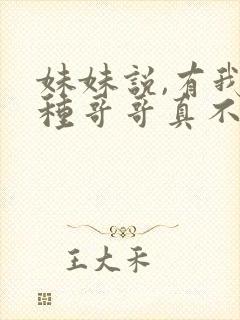 妹妹説,有我
種哥哥真不
王大禾